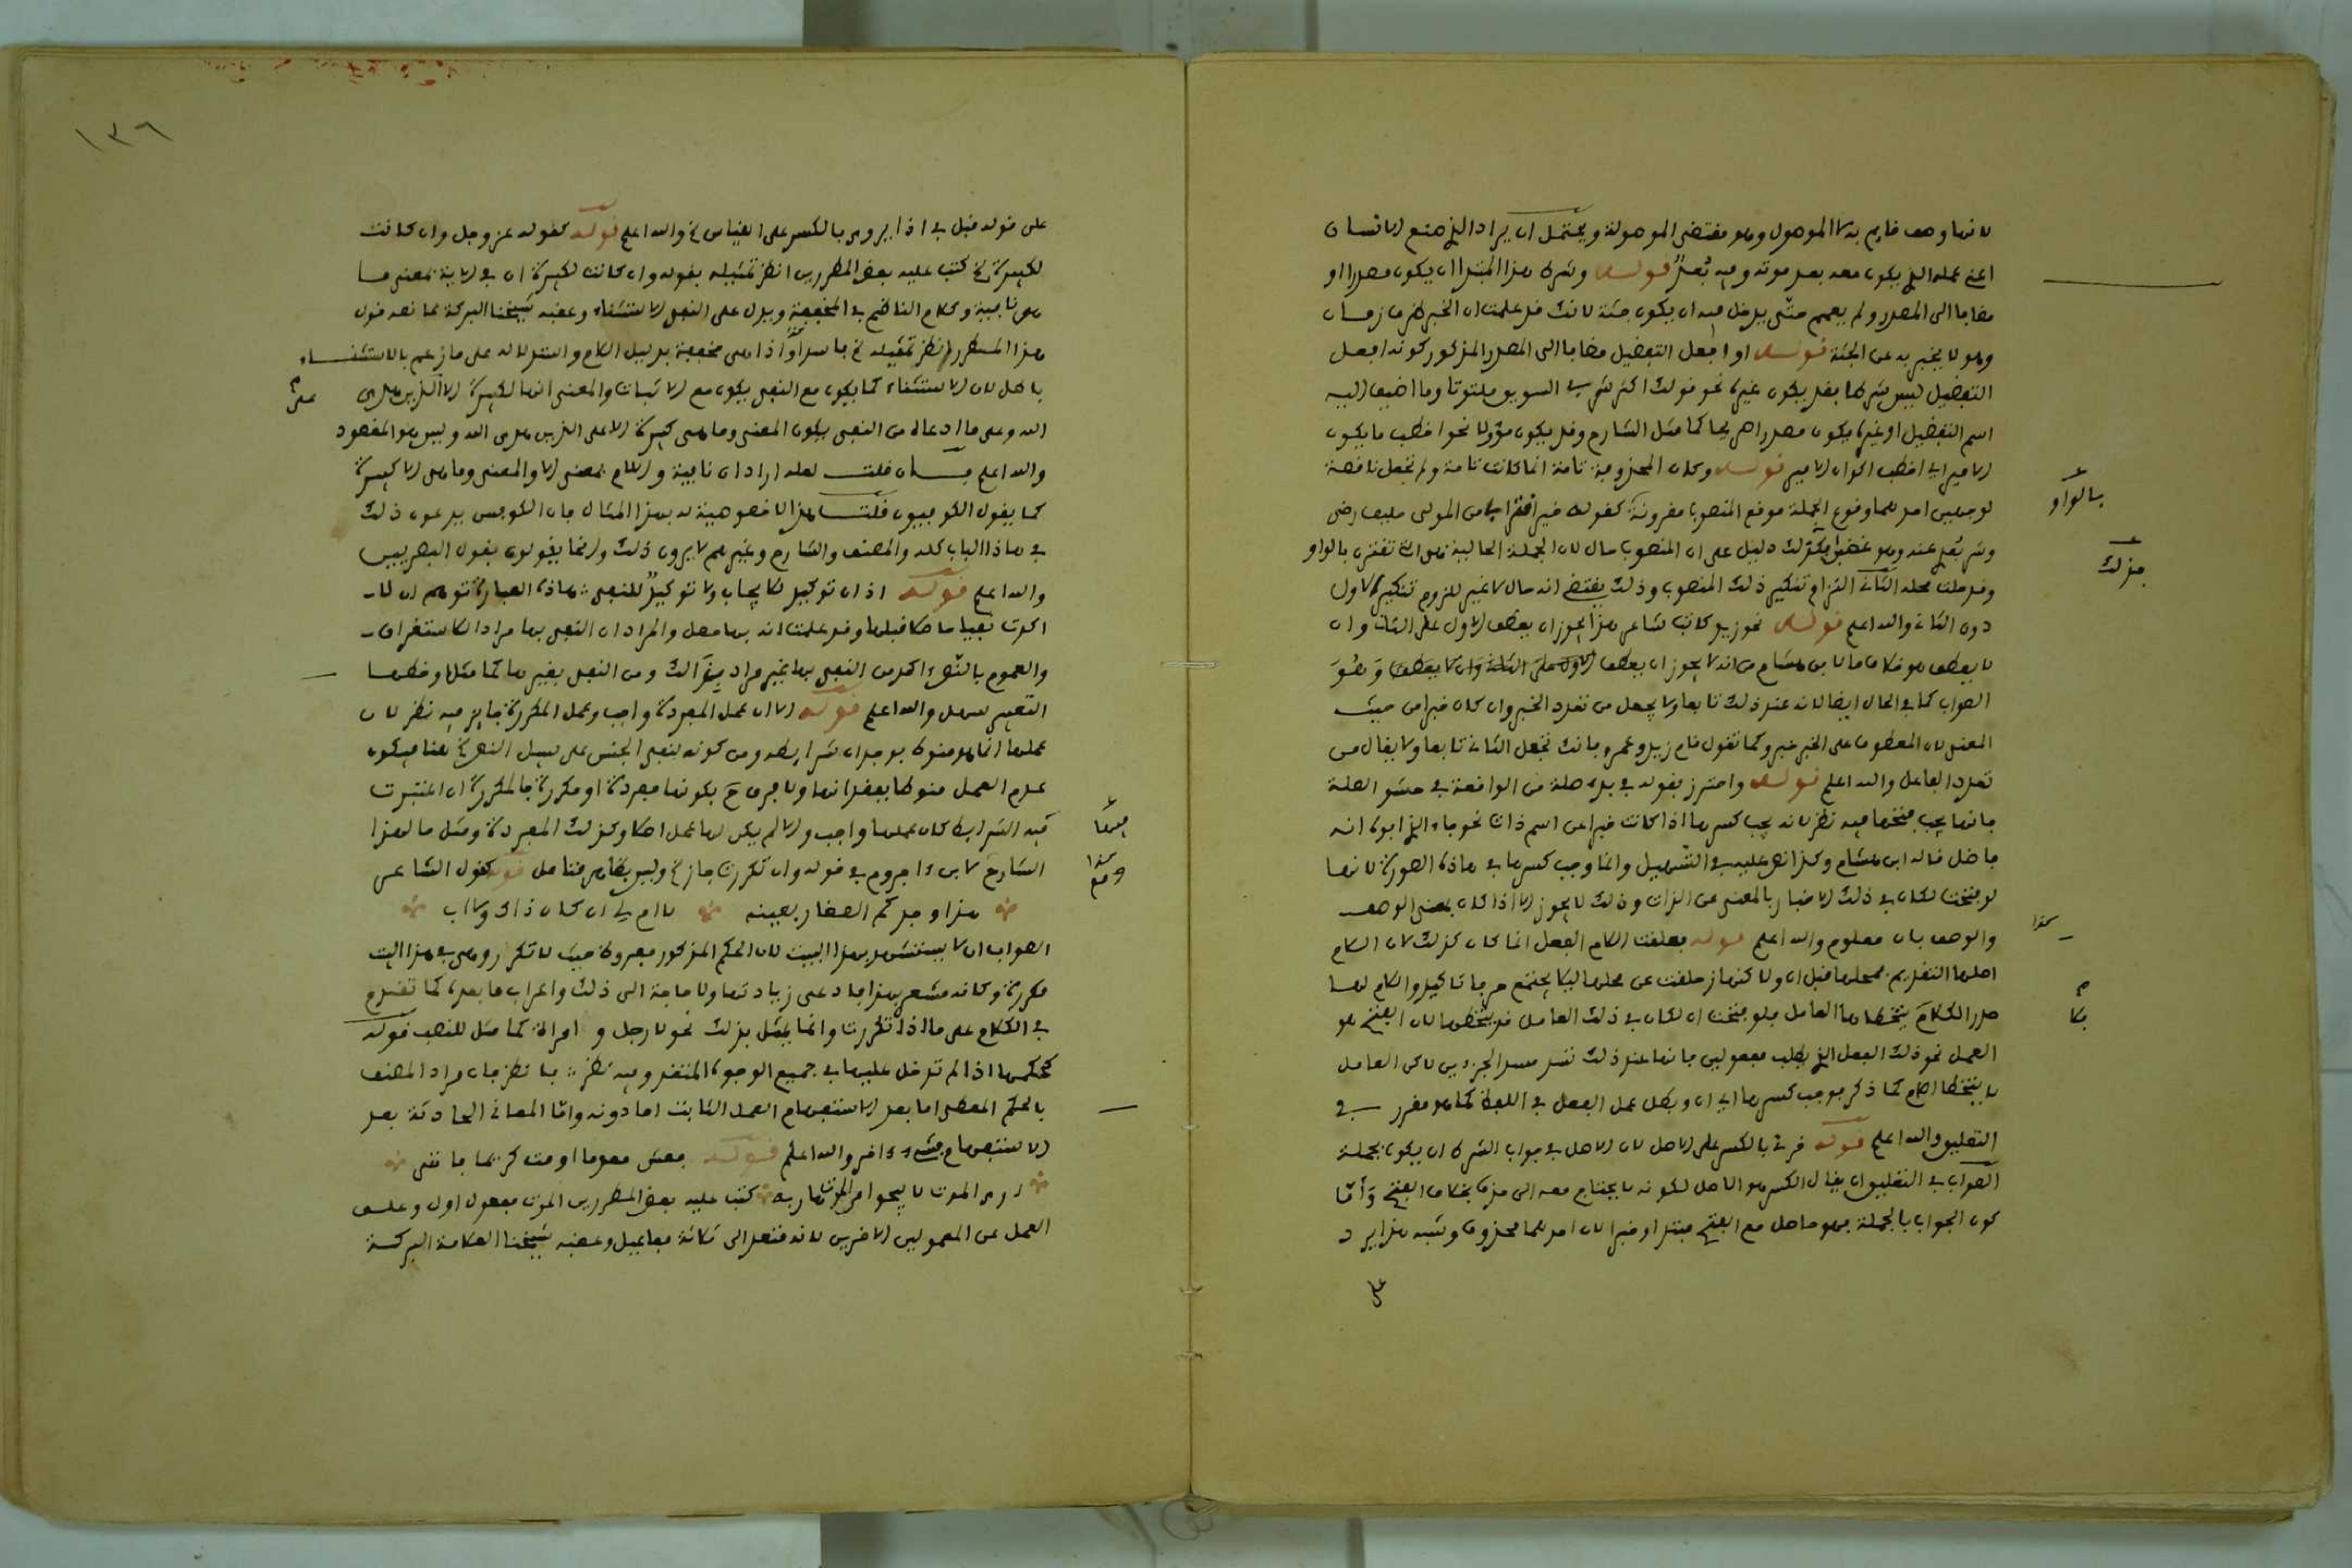 لانها وصف قايم بهذا الموصول وهو مقتضى الموصولة ويحتمل ان يراد الذي صنع الانسان
اعني عمله الذي يكون معه بعد موته وفيه بُعدٌ قوله وشرط هذا المبتدا ان يكون مصدرا او
مضافا الى المصدر ولم يعمم حتى يدخل فيه ان يكون جثة لانك قد علمت ان الخبر ظرف زمان
وهو لا يخبر به عن الجثة قوله او افعل التفضيل مضافا الى المصدر المذكور كونه افعل
التفضيل ليس شرطا فقد يكون غيره نحو قولك اكثر شربي السويق ملتوتا وما اضيف اليه
اسم التفضيل او غيره يكون مصدرا صريحا كما مثل الشارح وقد يكون مؤولا نحو اخطب ما يكون
الامير اي اخطب اكوان الامير قوله وكان المحذوفة تامة انما كانت تامة ولم تجعل ناقصة
لوجهين احدهما وقوع الجملة موقع المنصوب مقرونة كقوله خير اقترابي من المولى حليف رضى
بالواو
وشر بُعدي عنه وهو غضبان فذلك دليل على ان المنصوب حال لان الجملة الحالية هي التي تقترن بالواو
فذلك
وقد حلت محله الثاني التزام تنكير ذلك المنصوب وذلك يقتضي انه حال لا غير للزوم تنكير الاول
دون الثاني والله اعلم قوله نحو زيد كاتب شاعر هذا يجوز ان يعطف الاول على الثاني وان
لا يعطف هو خلاف ما لابن هشام من انه لا يجوز ان يعطف
الصواب كما في الحال ايضا لانه عند ذلك تابعا ولا يجعل من تعدد الخبر وان كان خبرا من حيث
المعنى لان المعطوف على الخبر خبر وكما تقول قام زيد وعمرو فانك تجعل الثاني تابعا ولا يقال من
تعدد الفاعل والله اعلم قوله واحترز بقوله في بدء صلة من الواقعة في حشو الصلة
فانها يجب فتحها فيه نظر لانه يجب كسرها اذا كانت خبرا عن اسم ذات نحو جاء الذي ابوه انه
فاضل قاله ابن هشام وكذا نص عليه في التسهيل وانما وجب كسرها في هاذه الصورة لانها
لو فتحت لكان في ذلك الاخبار بالمعنى عن الذات وذلك لا يجوز الا اذا كان بمعنى الوصف
والوصف بان معلوم والله اعلم قوله فعلقت اللام الفعل انما كان كذلك لان اللام
اصلها التقديم محلها قبل ان ولاكنها زحلقت عن محلها ليلا يجتمع حرفا تاكيد واللام لها
صدر الكلام يتخطاها العامل فلو فتحت ان لكان في ذلك العامل قد يتخطاها لان الفتح هو
فلا
العمل نحو ذلك الفعل الذي يطلب مفعولين فانها عند ذلك تسد مسد الجزءين لاكن العامل
لا يتخطا اللام كما ذكر فوجب كسرها اي ان وبطل عمل الفعل في اللفظ كما هو مقرر في
التعليق والله اعلم قوله قرئ بالكسر على الاصل لان الاصل في جواب الشرط ان يكون جملة
الصواب في التعليق ان يقال الكسر هو الاصل لكونه لا يحتاج معه الى حذف بخلاف الفتح وَأمّا
كون الجواب بالجملة فهو حاصل مع الفتح مبتدا وخبرا لان احدهما محذوف وشبه هذا يرد
على
١٣٦
على قوله قبل في اذا يروى بالكسر على القياس الخ والله اعلم قوله كقوله عز وجل وان كانت
لكبيرة الخ كتب عليه بعض المطررين انظر تمثيله بقوله وان كانت لكبيرة ان في الاية بمعنى ما
هي نافية وكلام الناظم في المخففة ويدل على النفي الاستثناء وعقبه شيخنا البركة بما نصه قول
هذا المطرر انظر تمثيله الخ فاسد اذ هي مخففة بدليل اللام واستدلاله على ما زعم بالاستثناء
باطل لان الاستثناء كما يكون مع النفي يكون مع الاثبات والمعنى انها لكبيرة الا الذين هدى
على
الله وعلى ما ادعاه من النفي يكون المعنى وما هي كبيرة الا على الذين هدى الله وليس هو المقصود
والله اعلم فان قلت لعله اراد ان نافية واللام بمعنى الا والمعنى وما هي الا كبيرة
كما يقول الكوفيون قلت هذا لا خصوصية له بهذا المثال فان الكوفيين يدعون ذلك
في هاذا الباب كله والمصنف والشارح وغيرهم لا يرون ذلك وانما يقولون بقول البصريين
والله اعلم قوله اذ ان توكيد للايجاب ولا توكيدٌ للنفي هاذه العبارة توهم ان لا
اكدت نفيا ما صلا قبلها وقد علمت انه بها حصل والمراد ان النفي بها مراد للاستغراق
والعموم بالنصّ اكد من النفي بها غير مراد به ذالك ومن النفي بغيرها كما مثل وخطبها
التعبير سهل والله اعلم قوله الا ان عمل المفردة واجب وعمل المكررة جايز فيه نظر لان
عملها انما هو منوط بوجدان شرايطه ومن كونه لنفي الجنس على سبيل النص الخ هنا فيكون
عدم العمل منوطا بفقدانها ولا فرق ح بكونها مفردة او مكررة فالمكررة ان اعتبرت
فيه الشرايط كان عملها واجب والا لم يكن لها عمل اصلا وكذلك المفردة ومثل ما لهذا
الشارح لابن ءاجروم في قوله وان تكررت جاز الخ وليس بظاهر فتامل قوله كقول الشاعر
هذا وجدكم الصغار بعينه لا ام لي ان كان ذاك ولا اب
الصواب ان لا يستشهد بهذا البيت لان الحكم المذكور مفروظ حيث لا تكرر وهي في هذا البيت
مكررة وكانه مشعر بهذا فادعى زيادتها ولا حاجة الى ذلك واعراب ما بعده كما تقدم
في الكلام على ما اذا تكررت وانما يمثل بذلك نحو لا رجل و امراة كما مثل للنصب قوله
كحكمها اذا لم تدخل عليها في جميع الوجوه المتقدمة فيه نظر فان مراد المصنف
بالحكم المعطى لما بعد الاستفهام العمل الثابت لها دونه وامّا المعاني الحادثة بعد
الاستفهام فشيء ءاخر والله اعلم قوله فعش معدما او مت كريما فانني
ارى الموت لا ينجو من الموت هاربه كتب عليه بعض المطررين الموت مفعول اول وعلق
العمل عن المفعولين الاخرين لانه متعد الى ثلاثة مفاعيل وعقبه شيخنا العلامة البركة